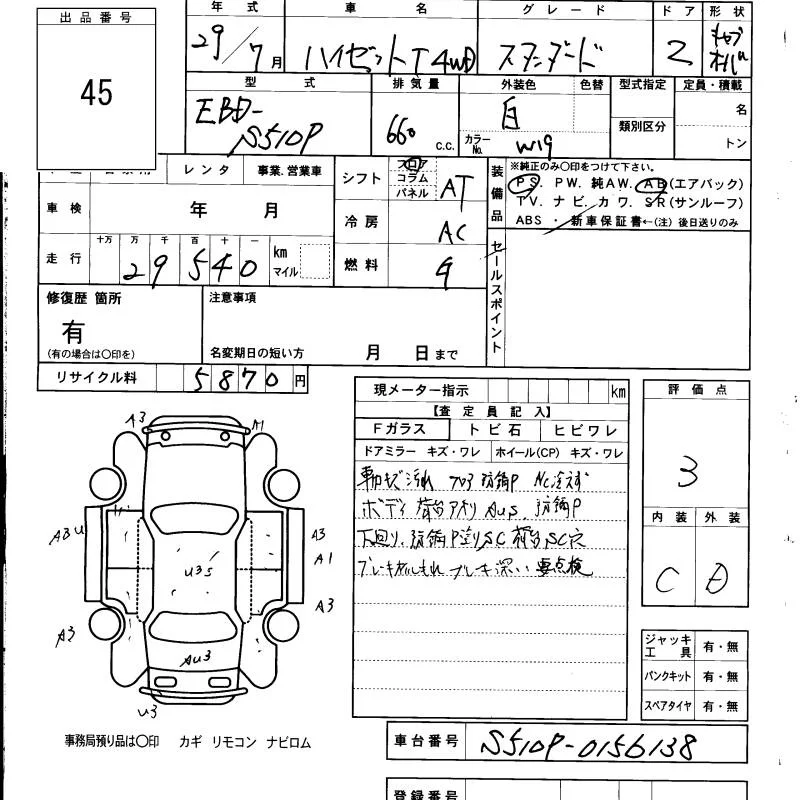 出品番号
45
年式 車名 グレード ドア 形状
29/7月 ハイゼットT 4WD スタンダード 2 キャブオーバ
型式 排気量 外装色 色替 型式指定 定員・積載
EBD-S510P 660 C.C. 白 類別区分 名
カラーNo. W19 トン
レンタ 事業.営業車 シフト フロア コラム パネル AT
車検 年 月 冷房 AC
走行 十万 万 千 百 十 一 km マイル 燃料
29540
装備品 ※純正のみ〇印をつけて下さい。
PS. PW. 純AW. AB(エアバック)
TV. ナビ. カワ. SR(サンルーフ)
ABS ・ 新車保証書←(注) 後日送りのみ
セールスポイント
修復歴 箇所 注意事項
有
(有の場合は〇印を) 名変期日の短い方 月 日まで
リサイクル料 5870円
現メーター指示 km
【査定員記入】
Fガラス トビ石 ヒビワレ
ドアミラー キズ・ワレ ホイール(CP) キズ・ワレ
車内キズ汚れ フロア防錆P
ボディ 荷台アオリ AUS 防錆P
下回り. 防錆P塗りSC 荷台SC穴
ブレーキオイルもれ ブレーキ深い 要点検
評価点
3
内装 外装
C D
ジャッキ工具 有・無
パンクキット 有・無
スペアタイヤ 有・無
A3 A1
A3U A3
A1
U3S
A3 A3
AU3
U3
事務局預り品は〇印 カギ リモコン ナビロム
車台番号 S510P-0156138
登録番号